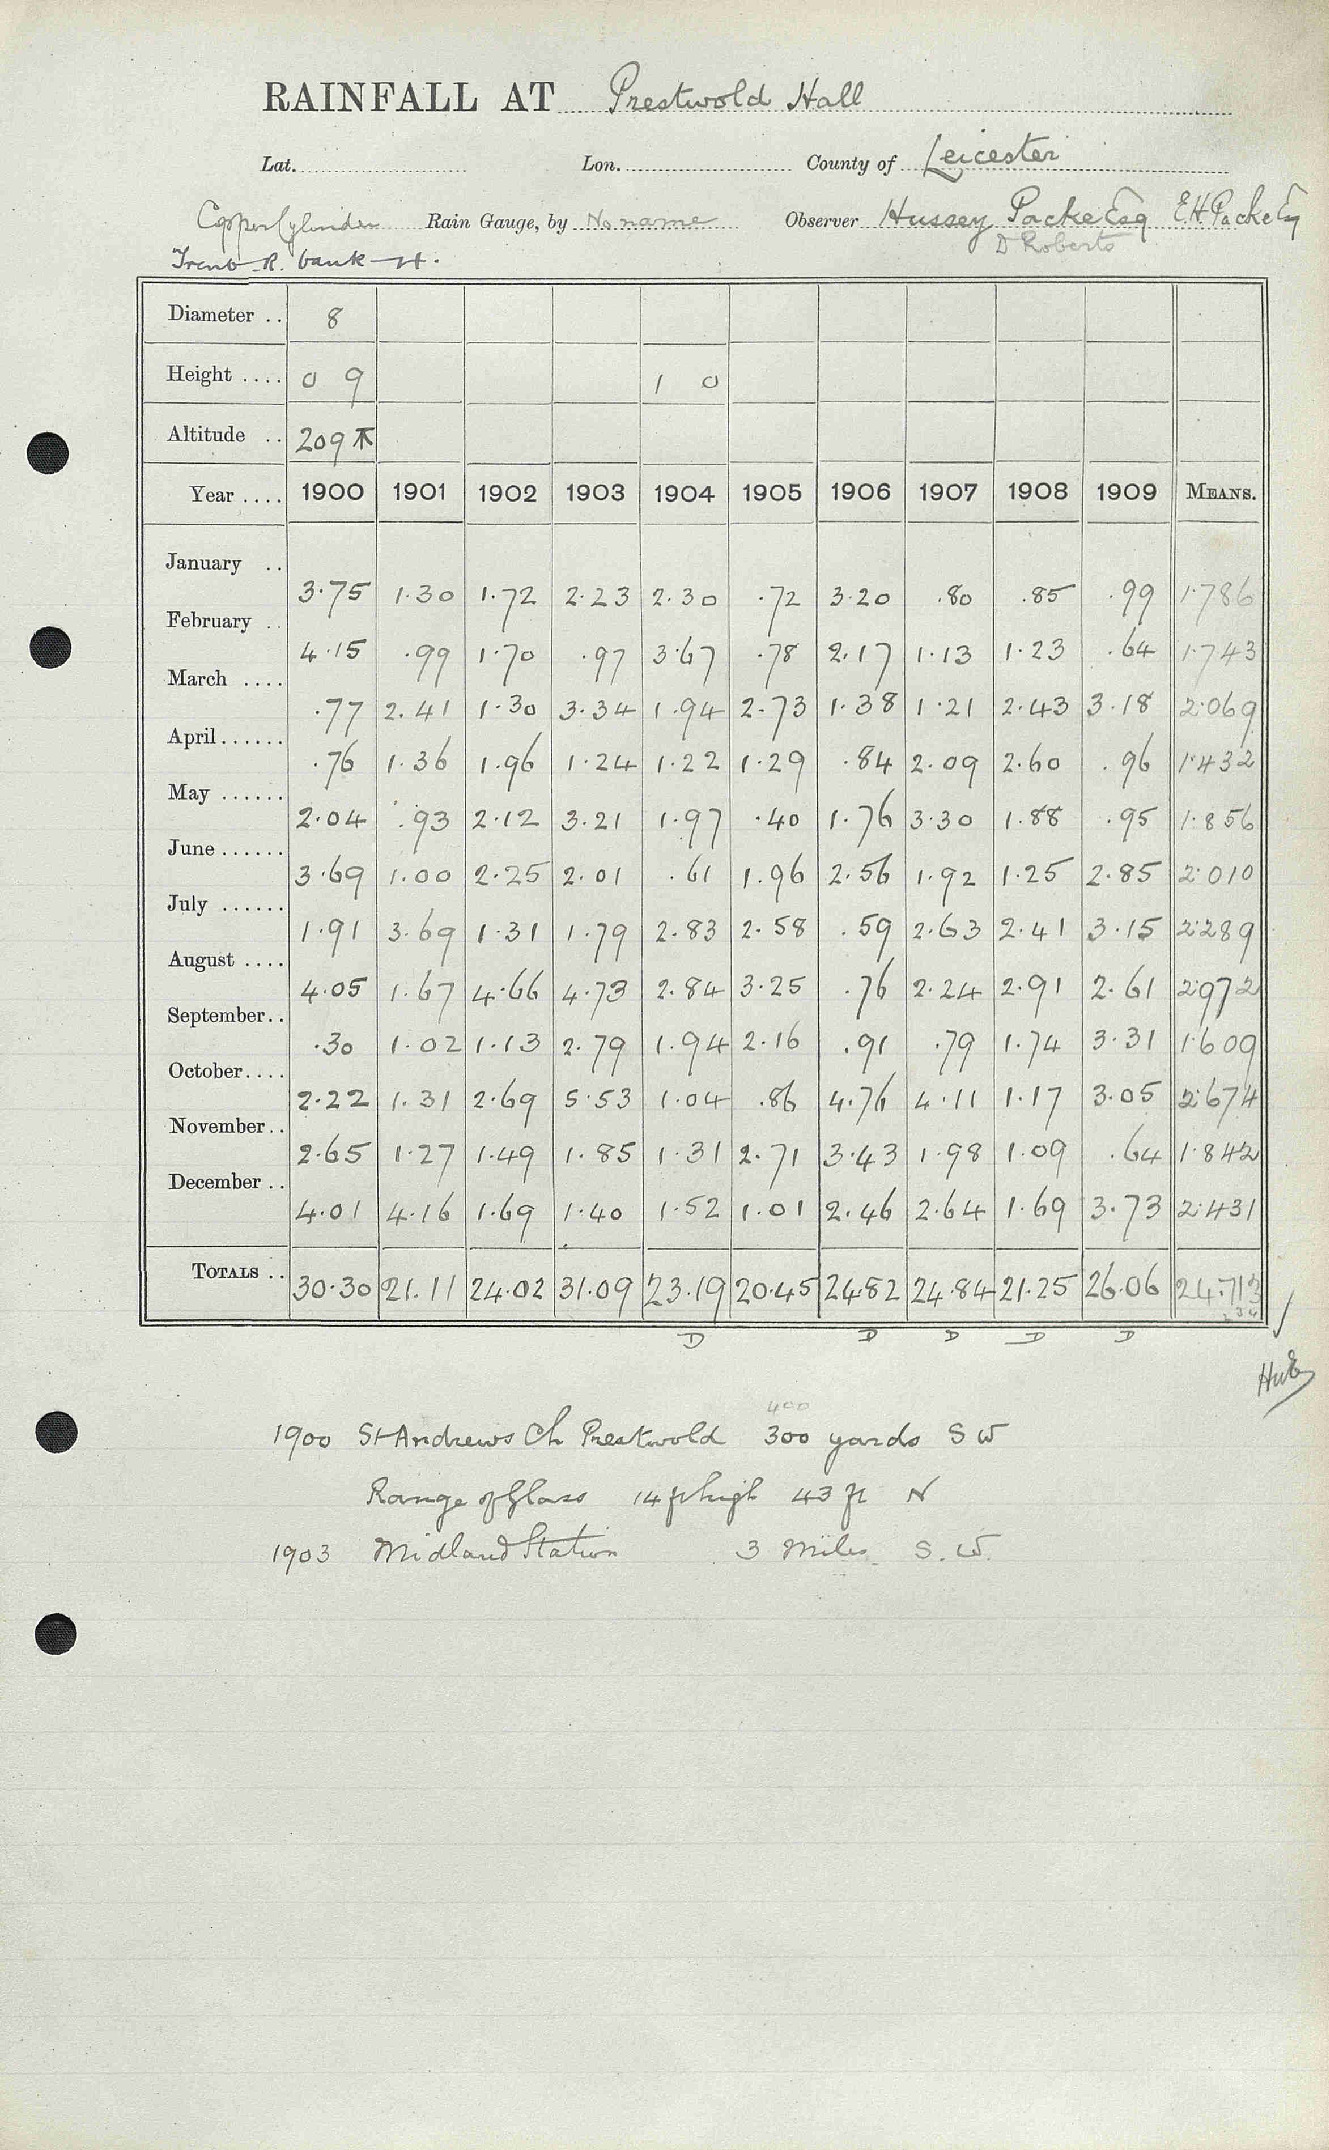 RAINFALL AT Prestwold Hall
Lat. Lon. County of Leicester
Copper Cylinder Rain Gauge, by No name Observer Hussey Packe Esq E.H. Packe Esq
Trent R. bank D Roberts
Diameter .. 8
Height .... 0 9 1 0
Altitude .. 209
Year .... 1900 1901 1902 1903 1904 1905 1906 1907 1908 1909 MEANS.
January .. 3.75 1.30 1.72 2.23 2.30 .72 3.20 .80 .85 .99 1.786
February .. 4.15 .99 1.70 .97 3.67 .78 2.17 1.13 1.23 .64 1.743
March .... .77 2.41 1.30 3.34 1.94 2.73 1.38 1.21 2.43 3.18 2.069
April...... .76 1.36 1.96 1.24 1.22 1.29 .84 2.09 2.60 .96 1.432
May ...... 2.04 .93 2.12 3.21 1.97 .40 1.76 3.30 1.88 .95 1.856
June ...... 3.69 1.00 2.25 2.01 .61 1.96 2.56 1.92 1.25 2.85 2.010
July ...... 1.91 3.69 1.31 1.79 2.83 2.58 .59 2.63 2.41 3.15 2.289
August .... 4.05 1.67 4.66 4.73 2.84 3.25 .76 2.24 2.91 2.61 2.972
September.. .30 1.02 1.13 2.79 1.94 2.16 .91 .79 1.74 3.31 1.609
October.... 2.22 1.31 2.69 5.53 1.04 .86 4.76 4.11 1.17 3.05 2.674
November.. 2.65 1.27 1.49 1.85 1.31 2.71 3.43 1.98 1.09 .64 1.842
December .. 4.01 4.16 1.69 1.40 1.52 1.01 2.46 2.64 1.69 3.73 2.431
TOTALS .. 30.30 21.11 24.02 31.09 23.19 20.45 24.82 24.84 21.25 26.06 24.713
D D D D D
400
1900 St Andrews Ch Prestwold 300 yards S W
Range of Glass 14 ft high 43 ft N
1903 Midland Station 3 Miles S. W.